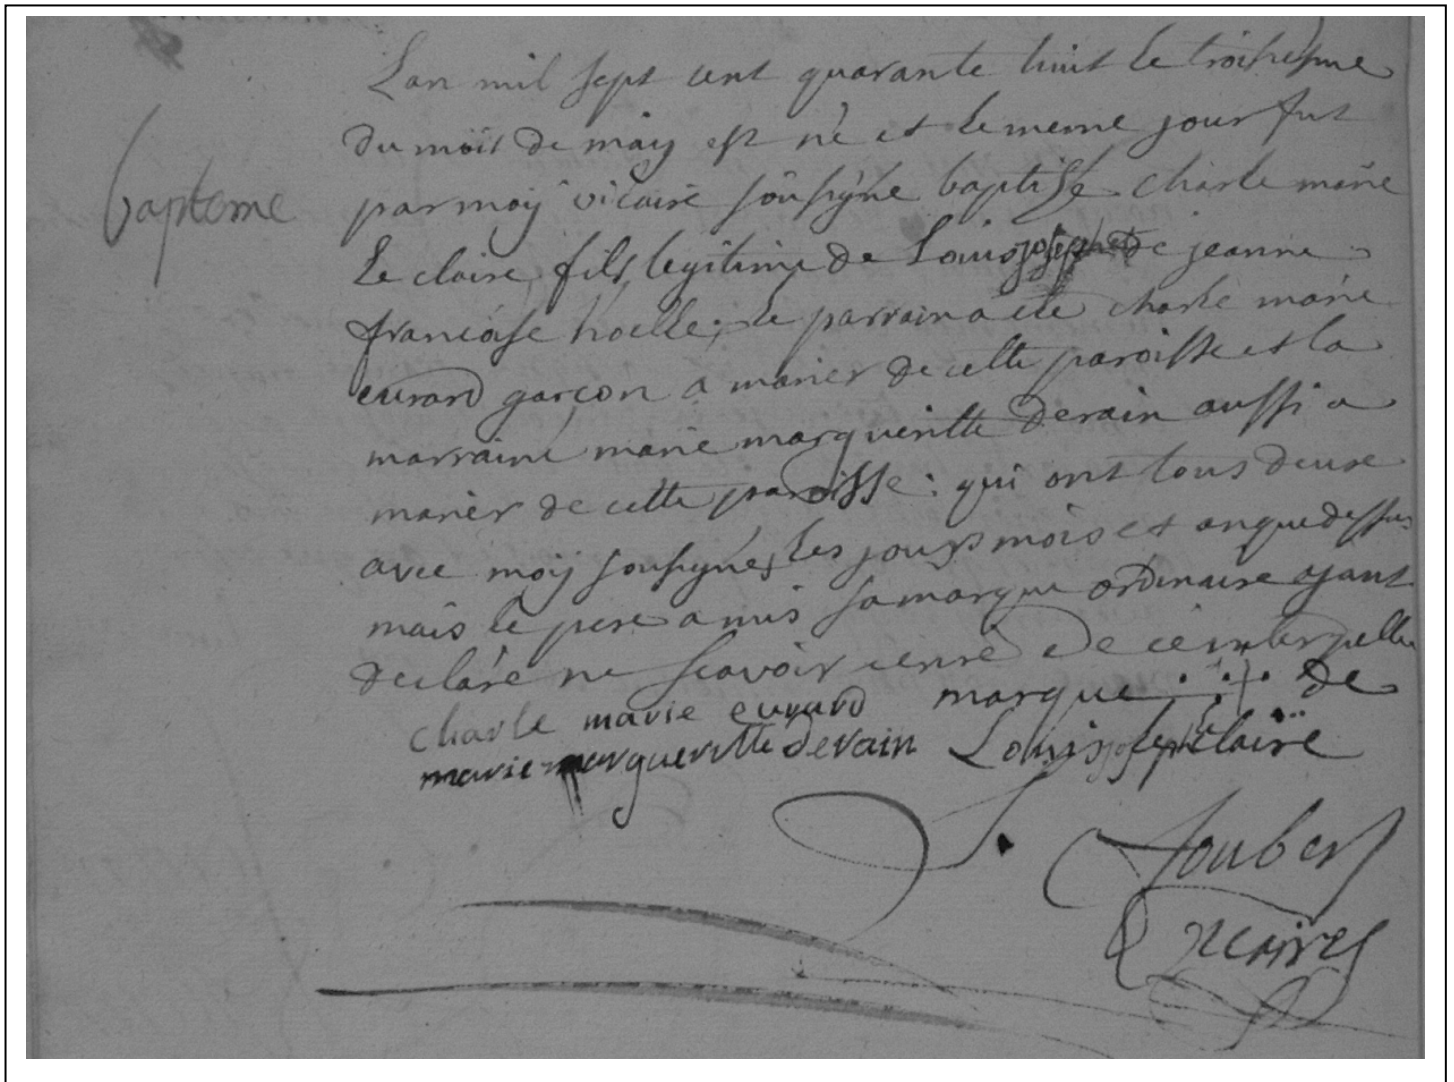 Lan mil sept cent quarante huit le troisiesme
du mois de may est né et le meme jour fut
bapteme
par moy vicaire sousigne baptisse charle marie
le claire fils legitime de Louis joseph et de jeanne
francoise hoelle; le parrain a ete charle marie
evrard garçon a marier de cette paroisse et la
marraine marie margueritte derain aussi a
marier de cette paroisse: qui ont tous deuxe
avec moy sousigné, les jours mois et an que dessus
mais le pere a mis sa marque ordinaire ayant
declaré ne scavoir ecrire de ce interpelle
charle marie evrard marque de
marie margueritte derain Louis joseph le claire
Joubert
vicaire